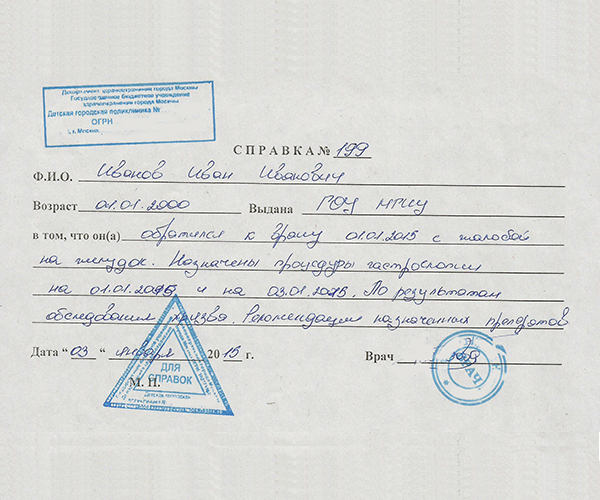 Департамент здравоохранения города Москвы
Государственное бюджетное учреждение
здравоохранения города Москвы
Детская городская поликлиника №
ОГРН
г. Москва
СПРАВКА № 199
Ф.И.О. Иванов Иван Иванович
Возраст 01.01.2000 Выдана ГОУ
в том, что он(а) обратился к врачу 01.01.2015 с жалобой
на желудок. Назначены процедуры гастроскопии
на 01.01.2015 и на 03.01.2015. По результатам
обследования язва. Рекомендации назначенных препаратов
Дата “ 03 “ января 2015 г. Врач
М. П.
ДЛЯ
СПРАВОК
ВРАЧ